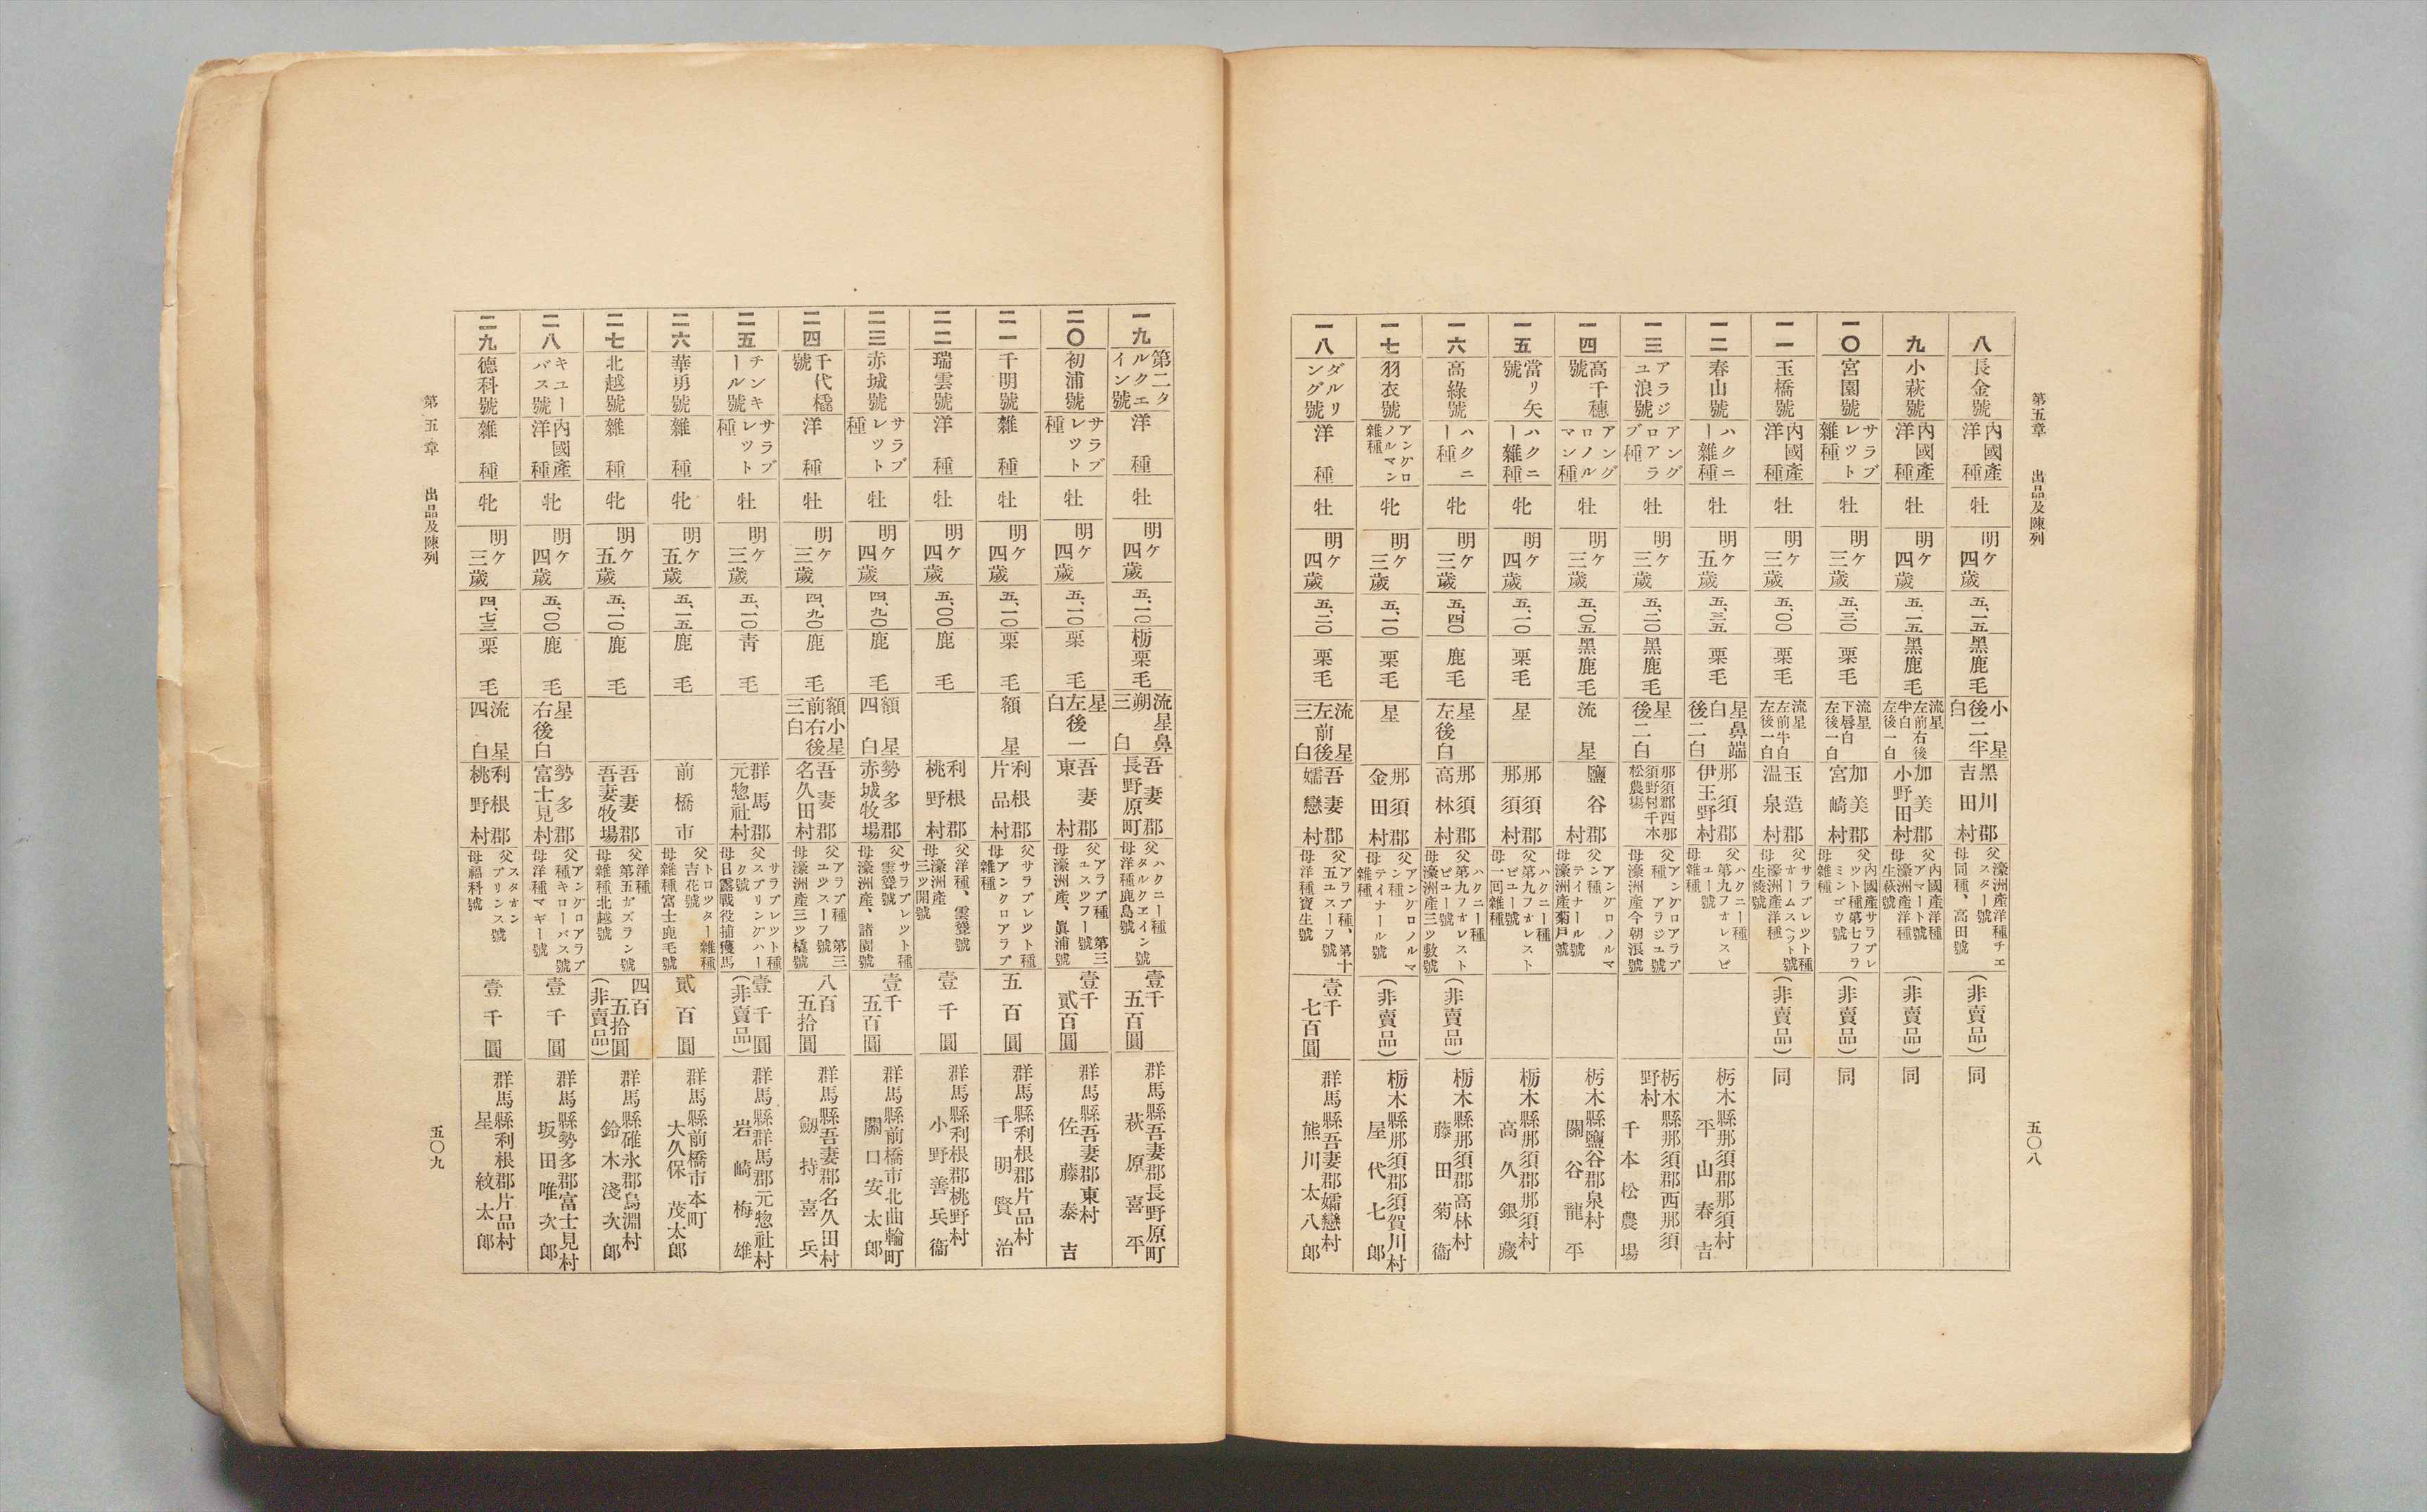 第五章　出品及陳列
五〇八
八
長金號
內國產
洋種
牡
明ケ
四歲
五、一五
黑鹿毛
小星
後二半
白
黑川郡
吉田村
父濠洲產洋種チエ
スター號
母同種、高田號
(非賣品)
同
九
小萩號
內國產
洋種
牡
明ケ
四歲
五、一五
黑鹿毛
流星
左前右後
半白
左後一白
加美郡
小野田村
父內國產洋種
アマート號
母濠洲產洋種
生萩號
(非賣品)
同
一〇
宮園號
サラブ
レツト
雜種
牡
明ケ
三歲
五、三〇
栗毛
流星
下唇白
左後一白
加美郡
宮崎村
父內國產サラブレ
ツト種第七フラ
ミンゴウ號
母雜種
(非賣品)
同
一一
玉橋號
內國產
洋種
牡
明ケ
三歲
五、〇〇
栗毛
流星
左前半白
左後一白
玉造郡
溫泉村
父サラブレツト種
ホームスヘツト號
母濠洲產洋種
生綾號
(非賣品)
同
一二
春山號
ハクニ
ー雜種
牡
明ケ
五歲
五、三五
栗毛
星鼻端
白
後二白
那須郡
伊王野村
父ハクニー種
第九フオレスピ
ユー號
母雜種
栃木縣那須郡那須村
平山春吉
一三
アラジ
ユ浪號
アング
ロアラ
ブ種
牡
明ケ
三歲
五、二〇
黑鹿毛
星
後二白
那須郡西那
須野村千本
松農場
父アングロアラブ
種、アラジユ號
母濠洲產今朝浪號
栃木縣那須郡西那須
野村
千本松農場
一四
高千穗
號
アング
ロノル
マン種
牡
明ケ
三歲
五、〇五
黑鹿毛
流星
鹽谷郡
村
父アングロノルマ
ン種
テイナール號
母濠洲產菊戶號
栃木縣鹽谷郡泉村
關谷龍平
一五
當リ矢
號
ハクニ
ー雜種
牝
明ケ
四歲
五、一〇
栗毛
星
那須郡
那須村
父ハクニー種
第九フオレスト
ピユー號
母一回雜種
栃木縣那須郡那須村
高久銀藏
一六
高綠號
ハクニ
ー種
牝
明ケ
三歲
五、四〇
鹿毛
星
左後白
那須郡
高林村
父ハクニー種
第九フオレスト
ピユー號
母濠洲產三ツ敷號
(非賣品)
栃木縣那須郡高林村
藤田菊衞
一七
羽衣號
アングロ
ノルマン
雜種
牝
明ケ
三歲
五、一〇
栗毛
星
那須郡
金田村
父アングロノルマ
ン種
テイナール號
母雜種
(非賣品)
栃木縣那須郡須賀川村
屋代七郎
一八
ダルリ
ング號
洋種
牡
明ケ
四歲
五、二〇
栗毛
流星
左前後
三白
吾妻郡
嬬戀村
父アラブ種、第十
五ユスーフ號
母洋種寶生號
壹千
七百圓
群馬縣吾妻郡嬬戀村
熊川太八郎
一九
第二タ
ルクエ
イン號
洋種
牡
明ケ
四歲
五、一〇
栃栗毛
流星鼻
朔
三白
吾妻郡
長野原町
父ハクニー種
タルクヱイン號
母洋種鹿島號
壹千
五百圓
群馬縣吾妻郡長野原町
萩原喜平
二〇
初浦號
サラブ
レツト
種
牡
明ケ
四歲
五、一〇
栗毛
星
左後一
白
吾妻郡
東村
父アラブ種　第三
ユスツフー號
母濠洲產、眞浦號
壹千
貳百圓
群馬縣吾妻郡東村
佐藤泰吉
二一
千明號
雜種
牡
明ケ
四歲
五、一〇
栗毛
額星
利根郡
片品村
父サラブレツト種
母アンクロアラブ
雜種
五百圓
群馬縣利根郡片品村
千明賢治
二二
瑞雲號
洋種
牡
明ケ
四歲
五、〇〇
鹿毛
利根郡
桃野村
父洋種、雲聳號
母濠洲產
三ツ開號
壹千圓
群馬縣利根郡桃野村
小野善兵衞
二三
赤城號
サラブ
レツト
種
牡
明ケ
四歲
四、九〇
鹿毛
額星
四白
勢多郡
赤城牧場
父サラブレツト種
雲聳號
母濠洲產、諸園號
壹千
五百圓
群馬縣前橋市北曲輪町
關口安太郎
二四
千代橇
號
洋種
牡
明ケ
三歲
四、九〇
鹿毛
額小星
前右後
三白
吾妻郡
名久田村
父アラブ種　第三
ユツスーフ號
母濠洲產三ツ橇號
八百
五拾圓
群馬縣吾妻郡名久田村
劔持喜兵
二五
チンキ
ール號
サラブ
レツト
種
牡
明ケ
三歲
五、一〇
靑毛
群馬郡
元惣社村
父サラブレツト種
スプリングハー
ク號
母日露戰役捕獲馬
壹千圓
(非賣品)
群馬縣群馬郡元惣社村
岩崎梅雄
二六
華勇號
雜種
牝
明ケ
五歲
五、一五
鹿毛
前橋市
父トロツター雜種
吉花號
母雜種富士鹿毛號
貳百圓
群馬縣前橋市本町
大久保茂太郎
二七
北越號
雜種
牝
明ケ
五歲
五、一〇
鹿毛
吾妻郡
吾妻牧場
父洋種
第五ガズラン號
母雜種北越號
四百
五拾圓
(非賣品)
群馬縣碓氷郡烏淵村
鈴木淺次郎
二八
キユー
バス號
內國產
洋種
牝
明ケ
四歲
五、〇〇
鹿毛
星
右後白
勢多郡
富士見村
父アングロアラブ
種キローバス號
母洋種マギー號
壹千圓
群馬縣勢多郡富士見村
坂田唯次郎
二九
德科號
雜種
牝
明ケ
三歲
四、七三
栗毛
流星
四白
利根郡
桃野村
父スタオン號
プリンス號
母福科號
壹千圓
群馬縣利根郡片品村
星紋太郎
第五章　出品及陳列
五〇九